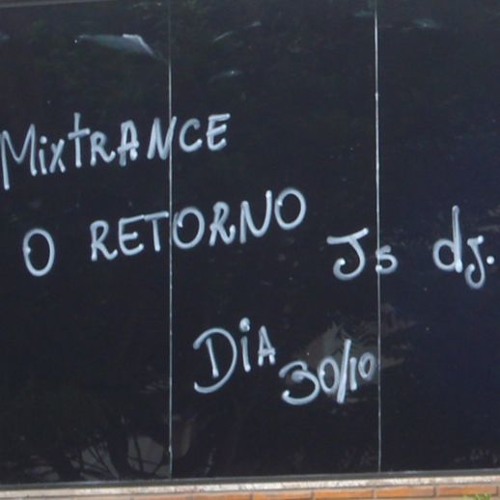 MixtRANCE
O RETORNO
Js dj.
DiA 30/10